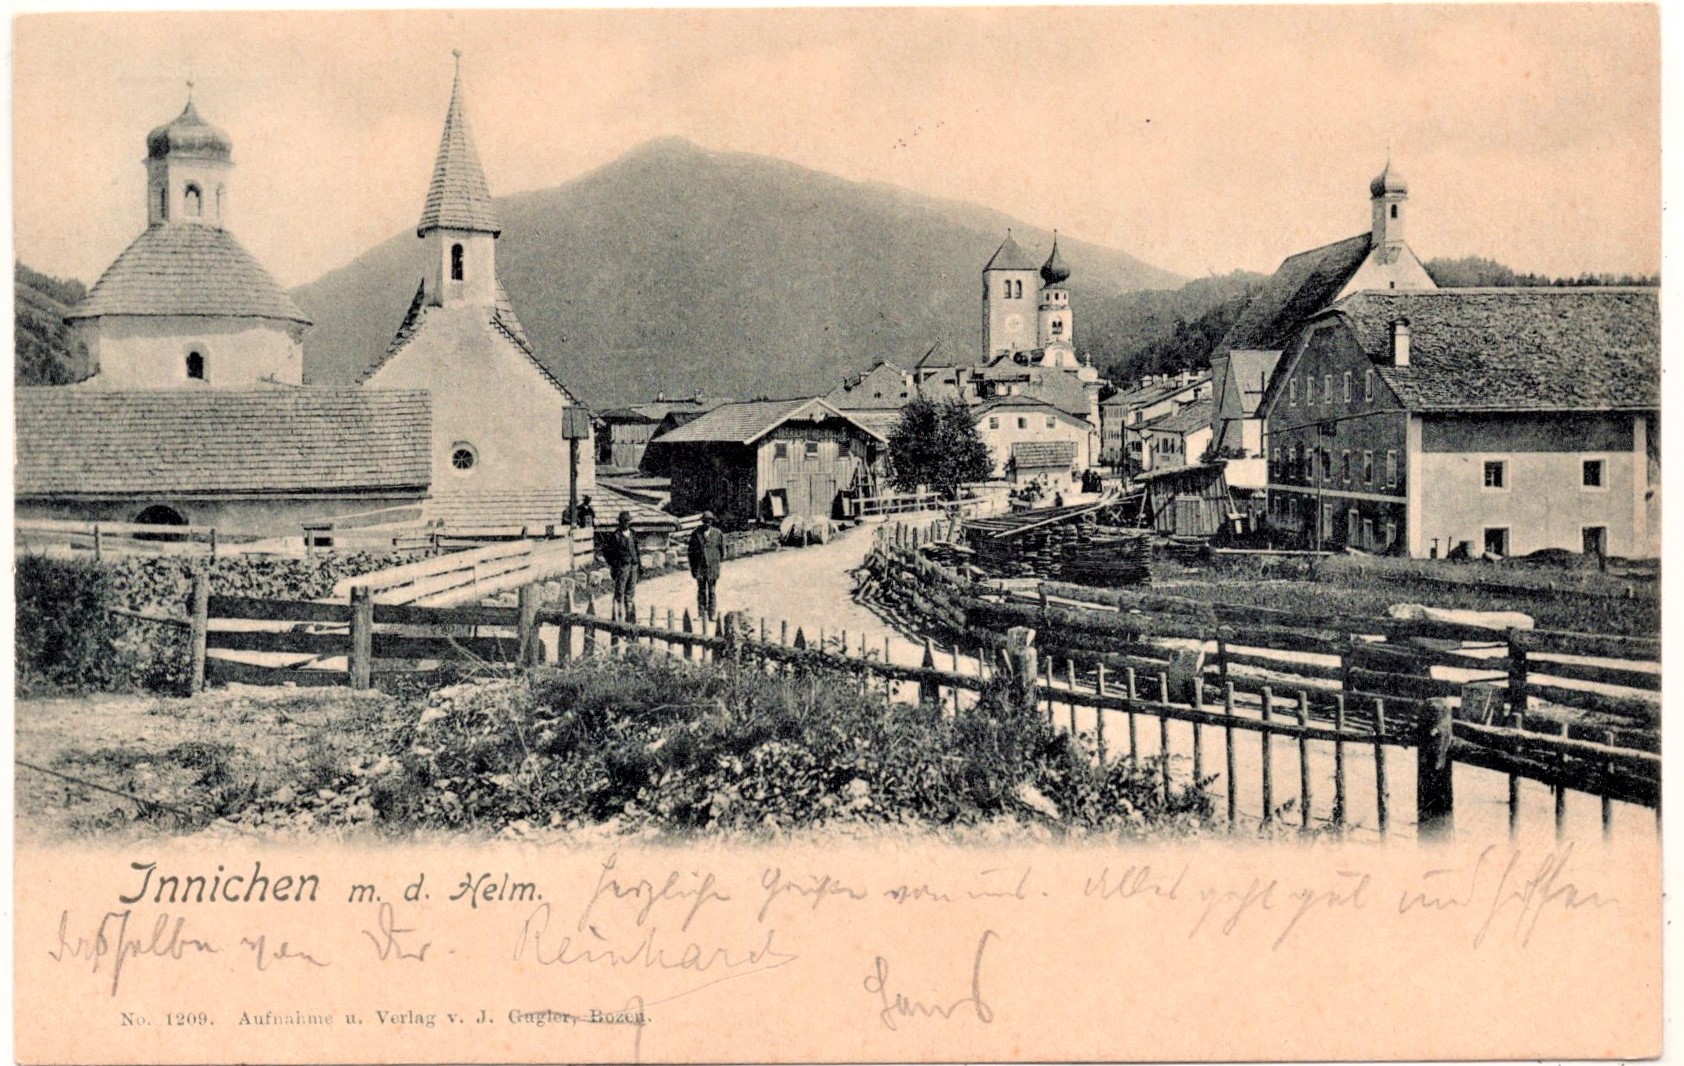 Innichen m. d. Helm. Herzliche Grüße von uns. Alles geht gut und hoffen
dasselbe von Dir. Reinhard
Hans
No. 1209. Aufnahme u. Verlag v. J. Gugler, Bozen.